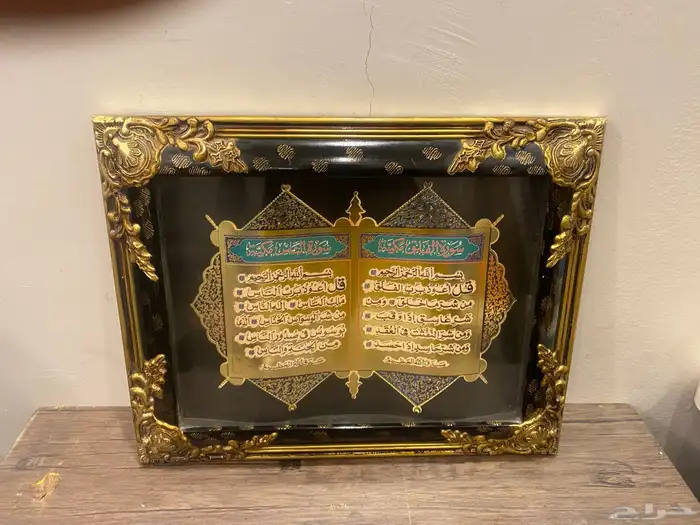 سورة الفلق مكية
بسم الله الرحمن الرحيم
قل اعوذ برب الفلق
من شر ما خلق ومن
شر غاسق اذا وقب
ومن شر النفثت في العقد
ومن شر حاسد اذا حسد
صدق الله العظيم
سورة الناس مكية
بسم الله الرحمن الرحيم
قل اعوذ برب الناس
ملك الناس اله الناس
من شر الوسواس الخناس الذي
يوسوس في صدور الناس
من الجنة والناس
صدق الله العظيم
حراج